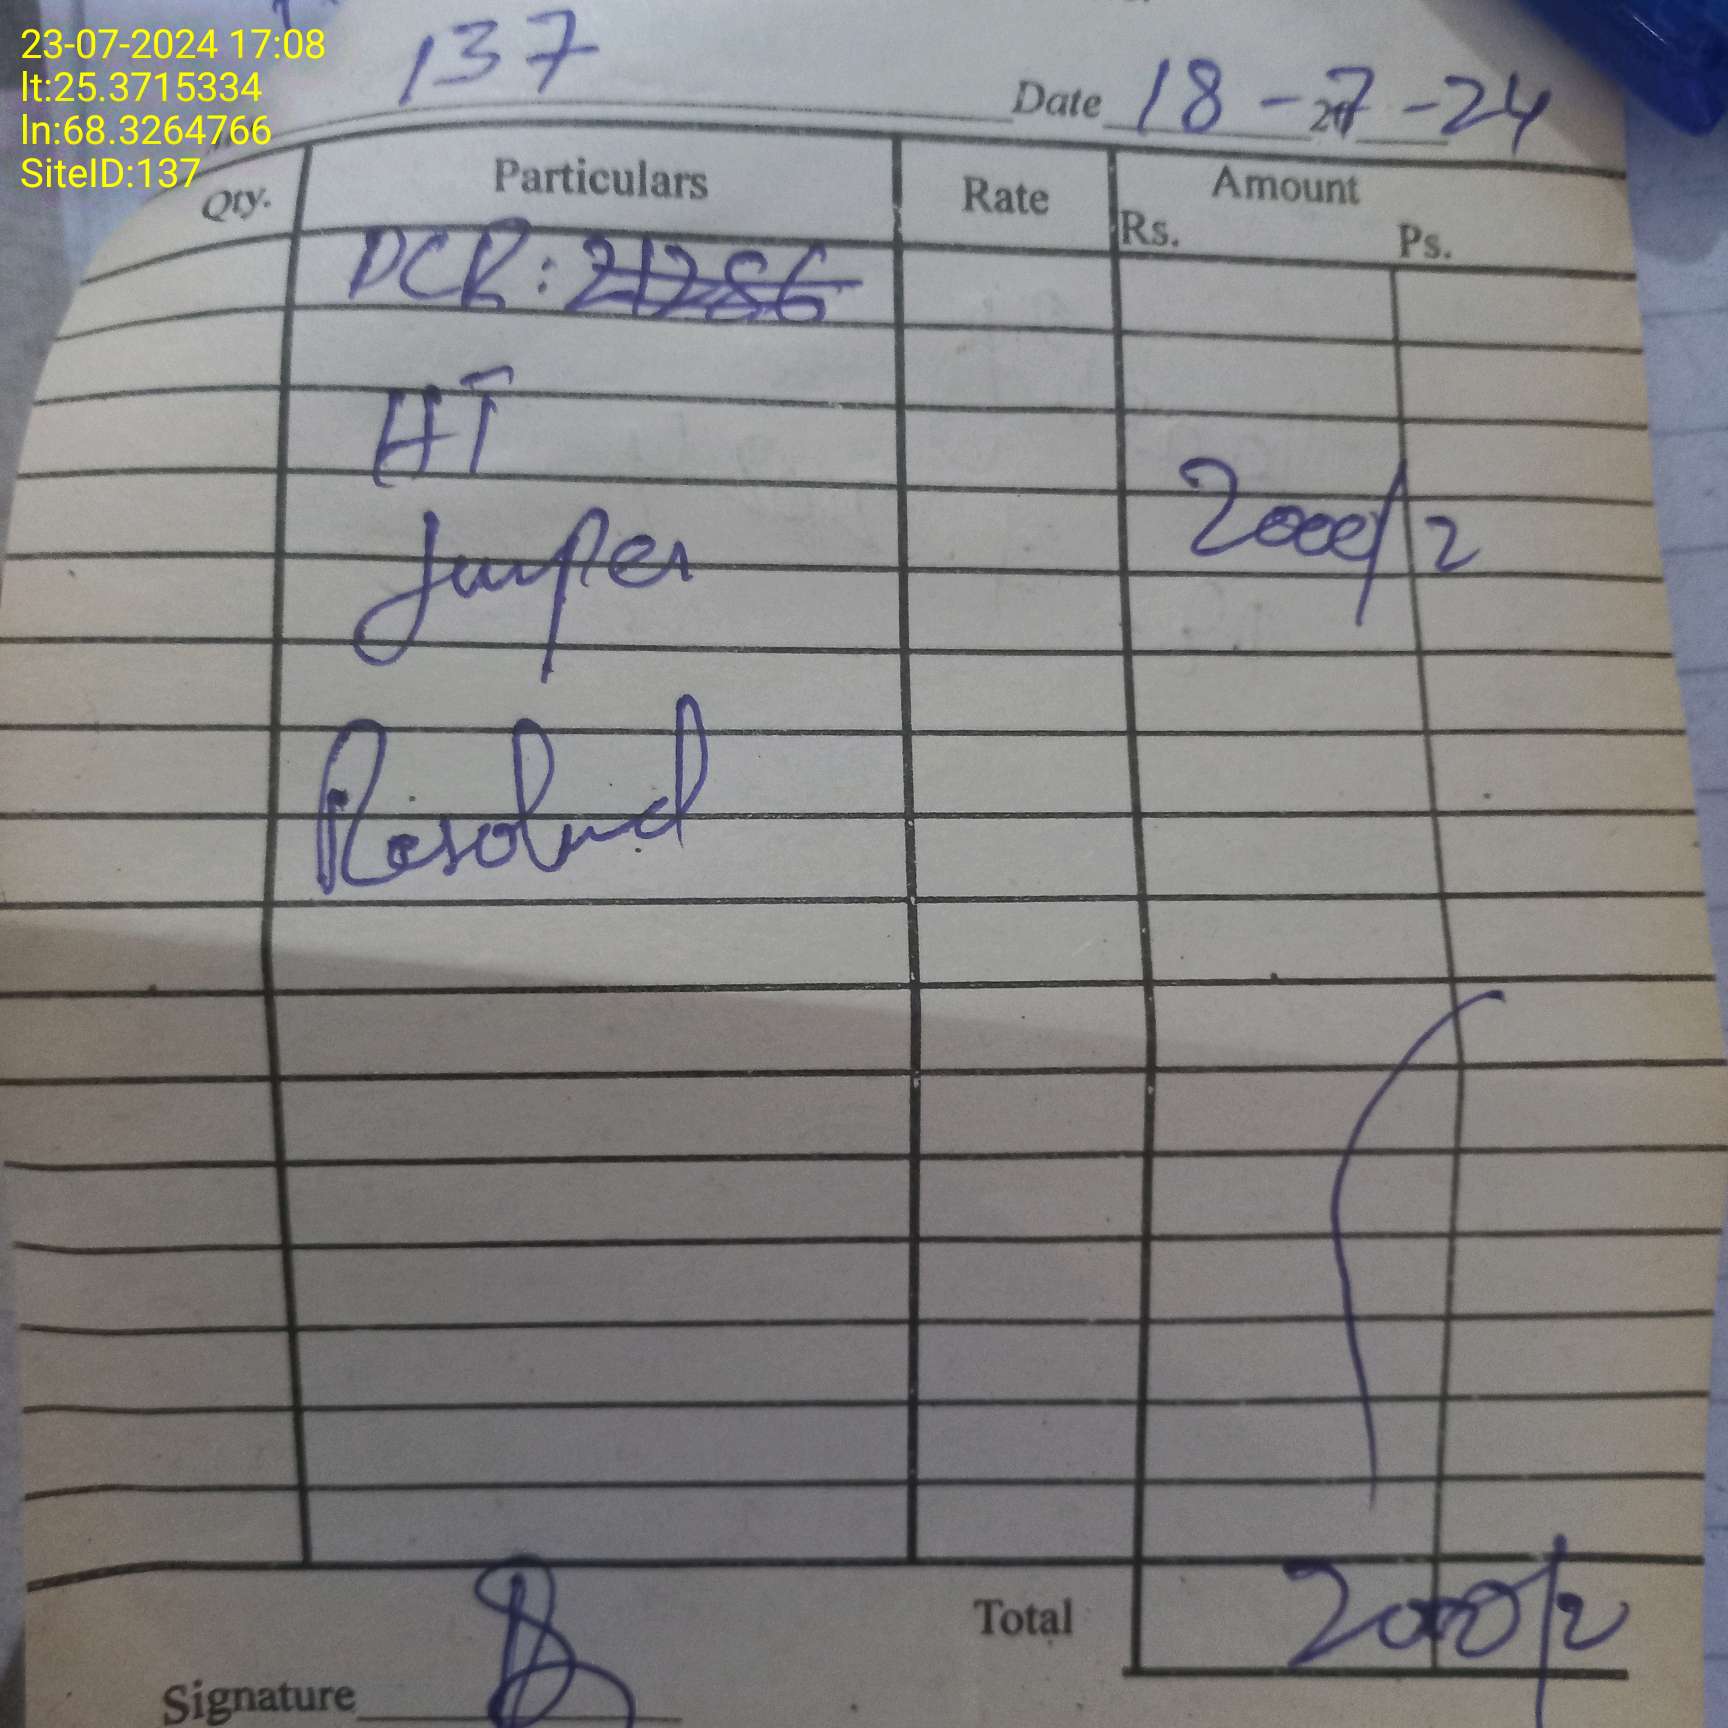 23-07-2024 17:08
lt:25.3715334
ln:68.3264766
SiteID:137
137
Date 18-7-24
Qty. Particulars Rate Amount
Rs. Ps.
DCR: 21286
HT
Jumper 2000/2
Resolved
Total 2000/2
Signature